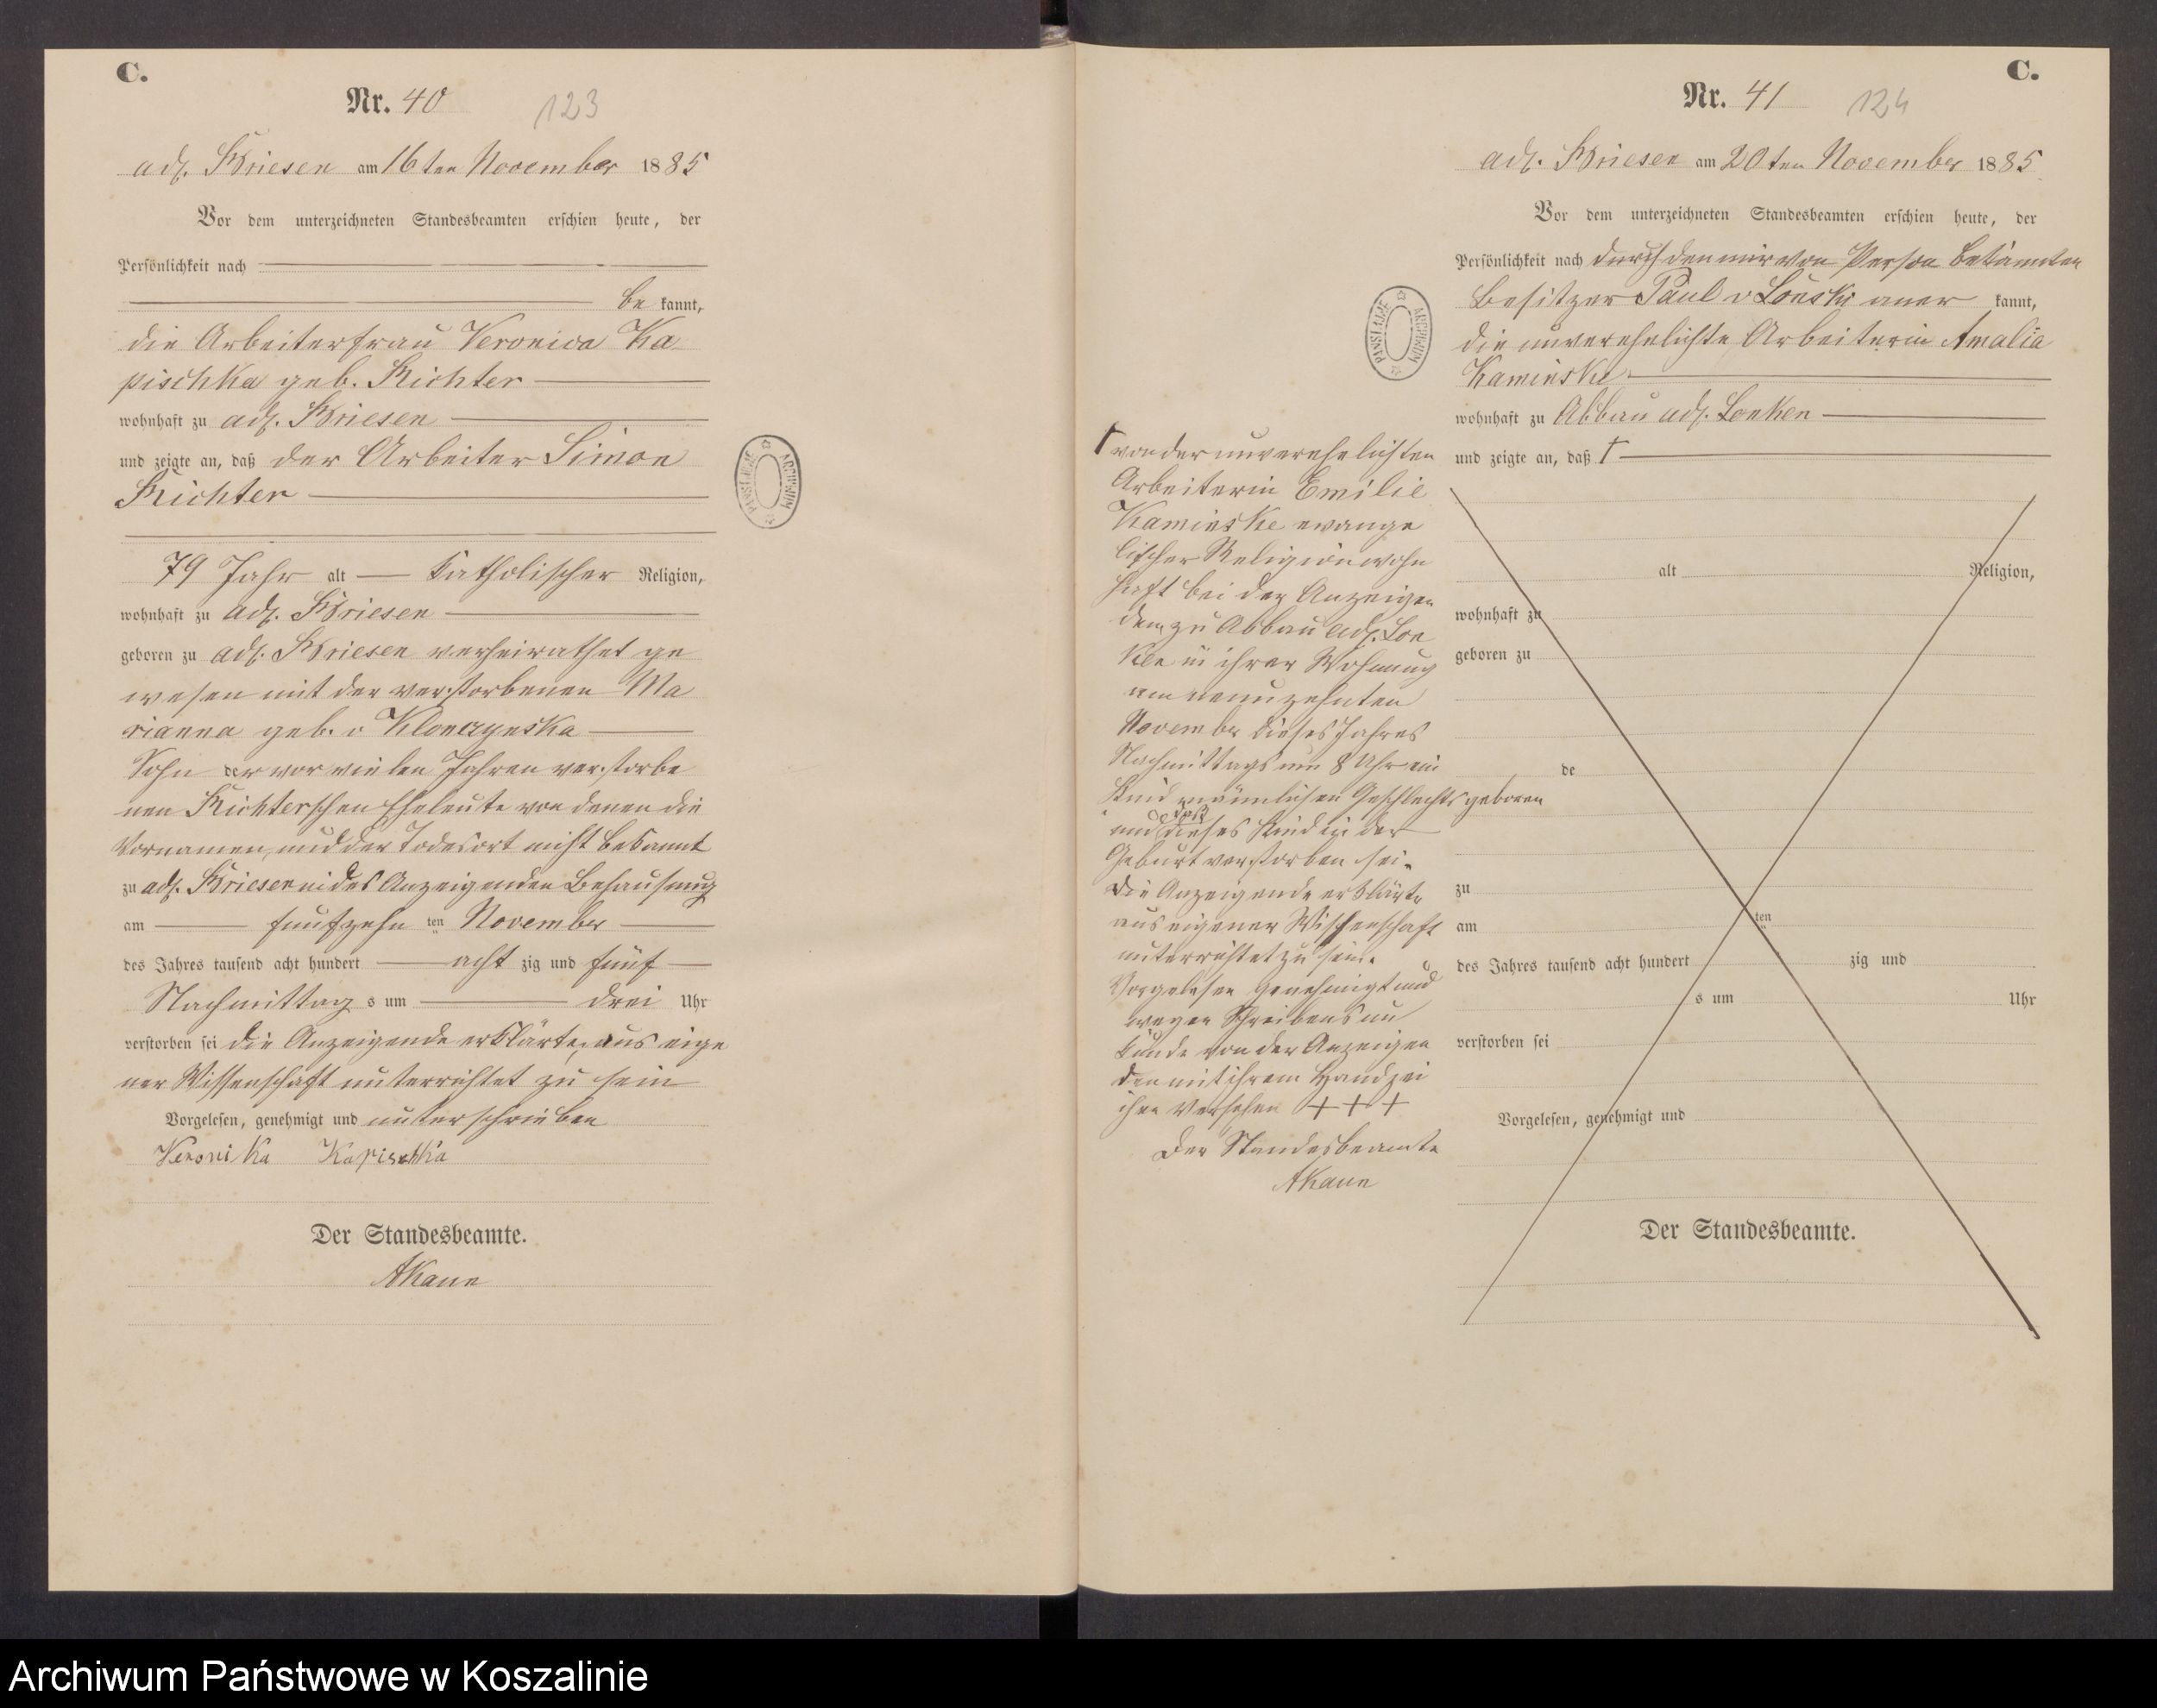 C.
Nr. 40 123
adl. Briesen am 16ten November 1885
Vor dem unterzeichneten Standesbeamten erschien heute, der
Persönlichkeit nach
be kannt,
die Arbeiterfrau Veronica Ka
pischka geb. Richter
wohnhaft zu adl. Briesen
und zeigte an, daß der Arbeiter Simon
Richter
79 Jahr alt katholischer Religion,
wohnhaft zu adl. Briesen
geboren zu adl. Briesen verheirathet ge
wesen mit der verstorbenen Ma
rianna geb. v Klonczynska
Sohn der vor vielen Jahren verstorbe
nen Richterschen Eheleute von denen die
Vornamen, und der Todesort nicht bekannt
zu adl. Briesen in des Anzeigenden Behausung
am fünfzehn ten November
des Jahres tausend acht hundert acht zig und fünf
Nachmittag s um drei Uhr
verstorben sei die Anzeigende erklärte, aus eige
ner Wissenschaft unterrichtet zu sein
Vorgelesen, genehmigt und unterschrieben
Veronika Kapischka
Der Standesbeamte.
AKaun
PAŃSTWOWE ARCHIWUM
C.
Nr. 41 124
adl. Briesen am 20ten November 1885
Vor dem unterzeichneten Standesbeamten erschien heute, der
Persönlichkeit nach durch den mir von Person bekannten
Besitzer Paul v Lonski aner kannt,
die unverehelichte Arbeiterin Amalia
Kaminske
wohnhaft zu Abbau adl. Lonken
und zeigte an, daß †
† von der unverehelichten
Arbeiterin Emilie
Kaminske evange
lischer Religion wohn
haft bei der Anzeigen
den zu Abbau adl. Lon
ken in ihrer Wohnung
am neunzehnten
November dieses Jahres
Nachmittags um 8 Uhr ein
Kind männlichen Geschlechts geboren
und daß dieses Kind in der
Geburt verstorben sei.
Die Anzeigende erklärte
aus eigener Wissenschaft
unterrichtet zu sein.
Vorgelesen genehmigt und
wegen Schreibens un
kunde von der Anzeigen
den mit ihrem Handzei
chen versehen + + +
Der Standesbeamte
AKaun
alt Religion,
wohnhaft zu
geboren zu
de
zu
am ten
des Jahres tausend acht hundert zig und
s um Uhr
verstorben sei
Vorgelesen, genehmigt und
Der Standesbeamte.
Archiwum Państwowe w Koszalinie